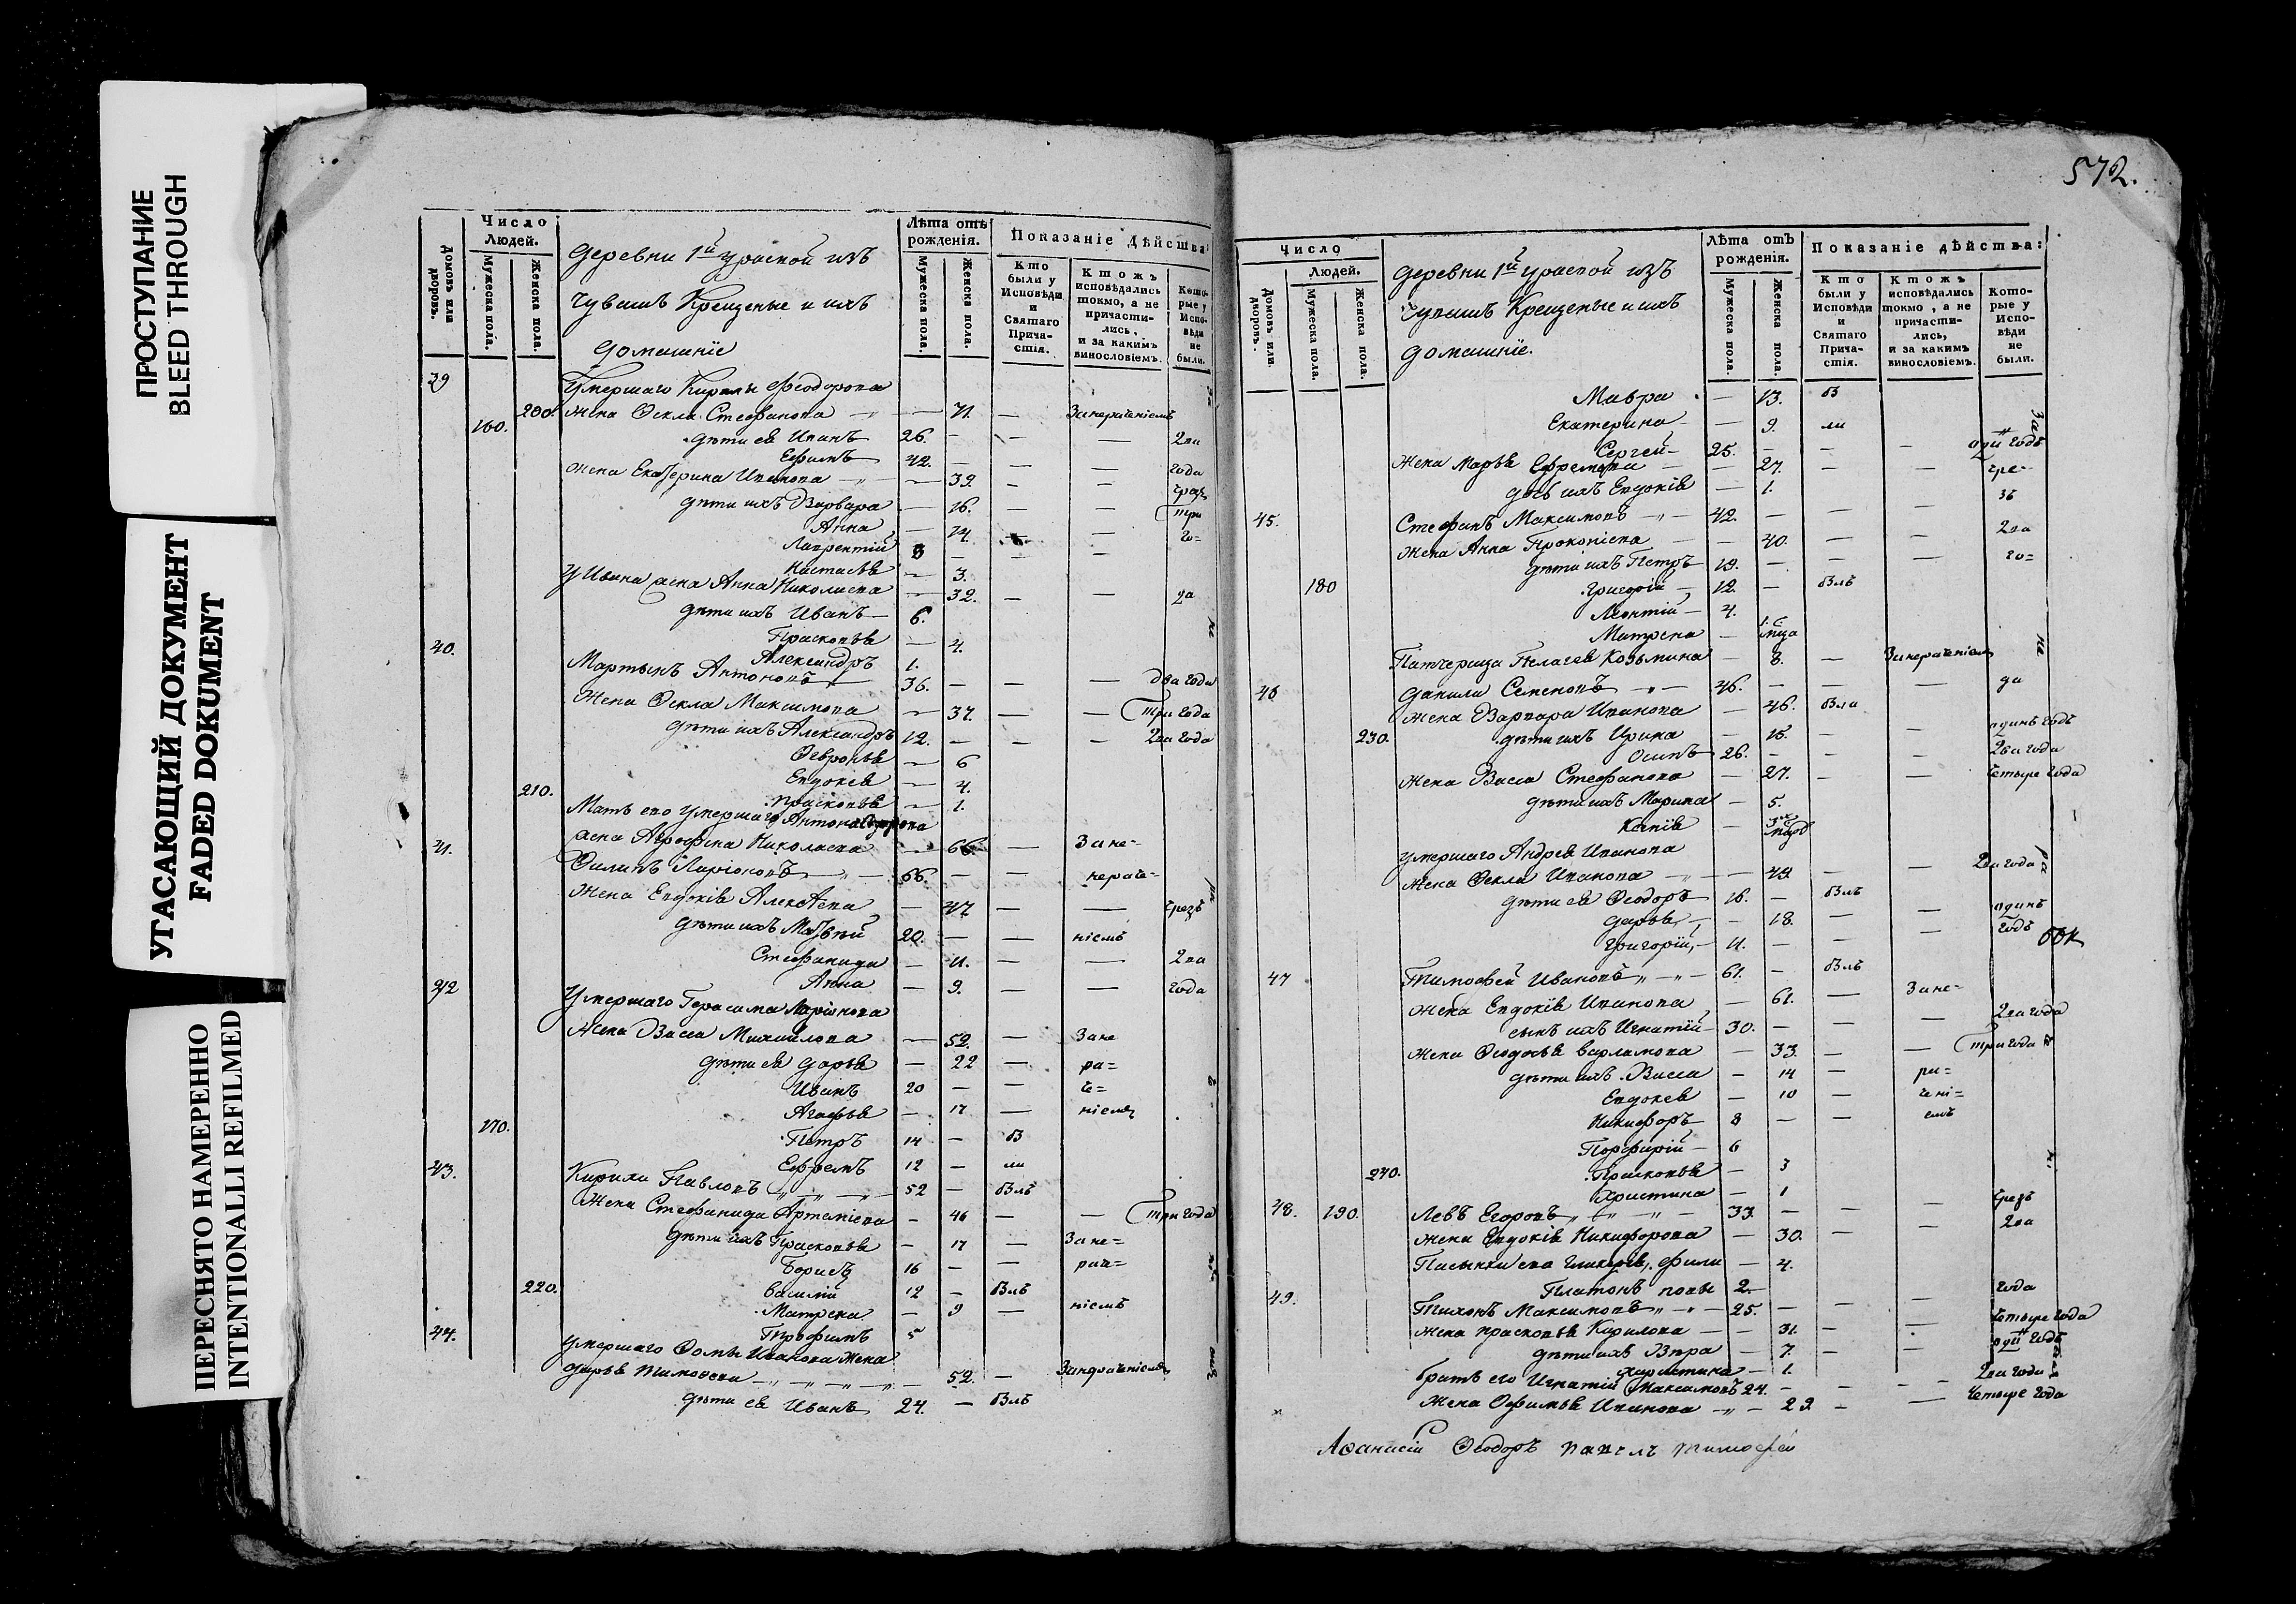 ПРОСТУПАНИЕ
BLEED THROUGH
УГАСАЮЩИЙ ДОКУМЕНТ
FADED DOKUMENT
ПЕРЕСНЯТО НАМЕРЕННО
INTENTIONALLI REFILMED
Домовъ или дворовъ.
Число Людей.
Мужеска пола.
Женска пола.
Деревни 1й Ураской изъ
Чувашъ Крещеные и ихъ
домашніе
Лѣта отъ рожденія.
Мужеска пола.
Женска пола.
Показаніе Дѣйства:
Кто были у Исповѣди и Святаго Причастія.
Ктожъ исповѣдались токмо, а не причастились, и за какимъ винословіемъ.
Которые у Исповѣди не были.
39 Умершаго Кирилы Феодорова
200. жена Ѳекла Стефанова — — 71. — Занераченіемъ
160. дѣти ея Иванъ 26. — — — два
Ефимъ 42. — — — года
жена Екатерина Иванова — 39. — — чрез
дѣти ихъ Варвара — 16. — — три
Анна — 14. — — го=
Лаврентій 8 — — —
Настасья — 3.
У Ивана жена Анна Николаева — 32. — — да
дѣти ихъ Иванъ — 6.
Прасковья — 4.
Александръ 1.
40. Мартынъ Антоновъ 36. — — — два года
Жена Ѳекла Максимова — 37. — — три года
дѣти ихъ Александръ 12. — — — два года
Февронья — 6
Евдокея — 4.
210. Прасковья — 1.
Мать его умершаго Антона
жена Агрофена Николаева — 66. — Зане=
41. Филипъ Ларіоновъ — 66. — — нераче=
Жена Евдокія Алексѣева — 47 — — чрезъ
дѣти ихъ Матвѣй 20. — — ніемъ
Стефанида — 11. — — два
Анна — 9. — — года
42 Умершаго Герасима Ларіонова
жена Васса Михайлова — 52. — Зане
дѣти ея Дарья — 22 — ра=
Иванъ 20 — — че=
Агафья — 17 — ніемъ
170. Петръ 14 — б
Ефремъ 12 — ли
43. Кирила Павловъ 52 — былъ
Жена Стефанида Артеміева — 46 — — три года
дѣти ихъ Прасковья — 17 — Зане=
Борисъ 16 — — рач=
220. Василій 12 — былъ
Матрена — 9 — ніемъ
Трофимъ 5
44. Умершаго Фомы Иванова жена
Дарья Тимофеева — 52. — Занераченіемъ
дѣти ея Иванъ 24. — былъ
572.
Домовъ или дворовъ.
Число Людей.
Мужеска пола.
Женска пола.
Деревни 1й Ураской изъ
Чувашъ Крещеные и ихъ
домашніе.
Лѣта отъ рожденія.
Мужеска пола.
Женска пола.
Показаніе дѣйства:
Кто были у Исповѣди и Святаго Причастія.
Ктожъ исповѣдались токмо, а не причастились, и за какимъ винословіемъ.
Которые у Исповѣди не были.
Мавра — 13. б
Екатерина — 9. ли
Сергей — 25. — — — годъ
Жена Марья Ефремова — 27. — — чре=
дочь ихъ Евдокія — 1. зъ
45. Стефанъ Максимовъ — 42. — — — два
Жена Анна Прокопіева — 40. — — го=
дѣти ихъ Петръ 19. — — —
180 Григорій — 12. — былъ
Леонтій — 4.
Матрена —
Патчерица Пелагея Козьмина — 8. — Занераченіемъ
46 Данила Семеновъ — 46. — — — да
Жена Варвара Иванова — 46. была
230. дѣти ихъ Ирина — 15. — — одинъ годъ
Осипъ 26. — — — два года
Жена Васса Стефанова — 27. — — Четыре года
дѣти ихъ Марина — 5.
Ксенія —
Умершаго Андрея Иванова
Жена Ѳекла Иванова — 49. — — два года
дѣти ея Ѳеодоръ 16. — былъ
Дарья — 18. — — одинъ
Григорій, — 11. — — — годъ
47 Тимофей Ивановъ — 61. — былъ
Жена Евдокія Иванова — 61. — Зане=
сынъ ихъ Игнатій 30. — — — два года
жена Ѳедосья Варламова — 33. — — три года
дѣти ихъ Васса — 14 — ра=
Евдокея — 10 — чені=
Никифоръ 8 — емъ
Порфирій — 6
240. Прасковья — 3
Христина — 1
48. 190. Левъ Егоровъ — 33. — — — чрезъ
жена Евдокія Никифорова — 30. — — два
Пасынки ева — 4.
Платонъ 2. — года
49. Тихонъ Максимовъ — 25. — — — Четыре года
жена Прасковья Кирилова — 31. — годъ
дѣти ихъ Вера — 7. — —
Христина — 1.
братъ его Игнатій Максимовъ 24. — — — два года
жена Офимья Иванова — 29 — — Четыре года
Аѳанасій Ѳеодоръ Павелъ Тимофей